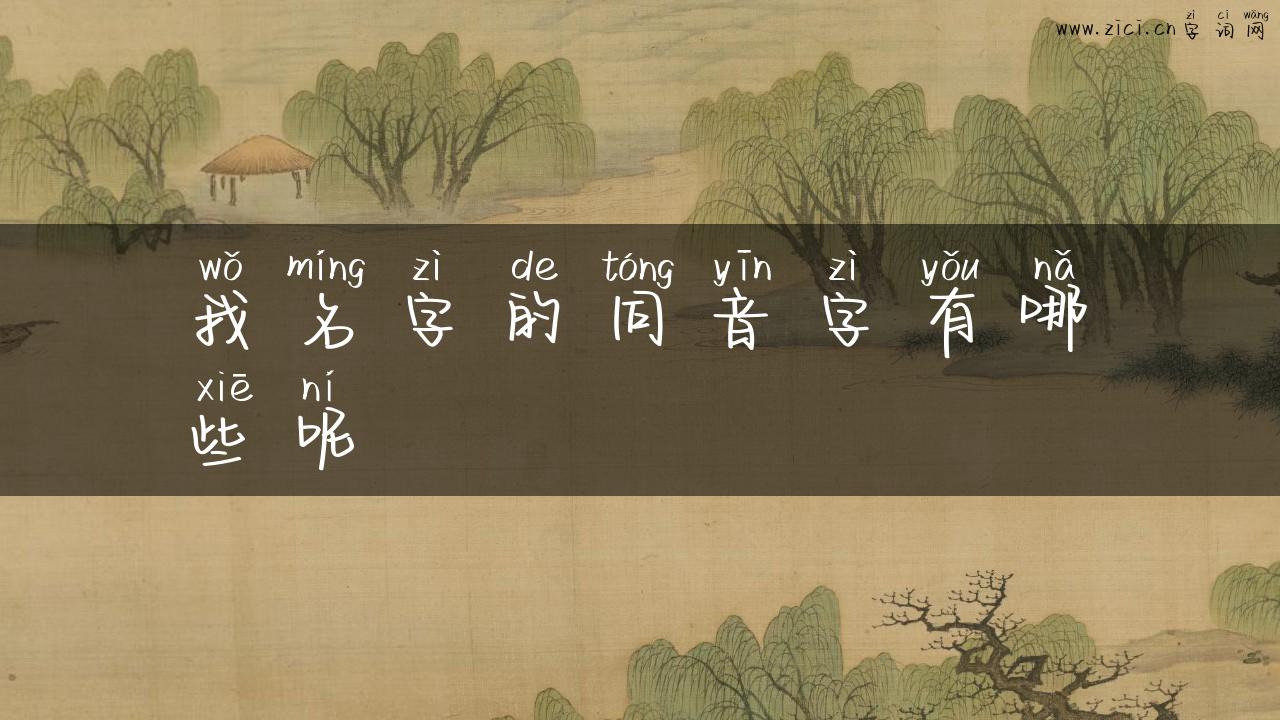 zì cí wǎng
www.zici.cn 字词网
wǒ míng zì de tóng yīn zì yǒu nǎ
我名字的同音字有哪
xiē ní
些呢